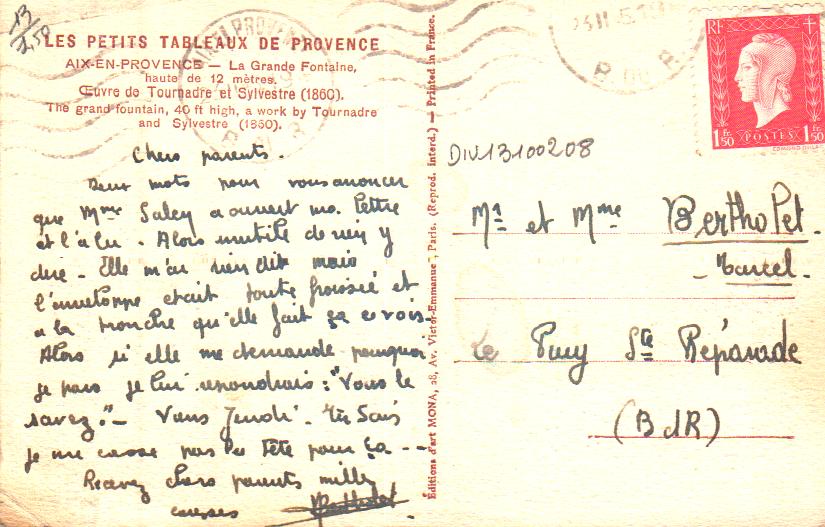 13
2,50
LES PETITS TABLEAUX DE PROVENCE
AIX-EN-PROVENCE — La Grande Fontaine,
haute de 12 mètres.
Œuvre de Tournadre et Sylvestre (1860).
The grand fountain, 40 ft high, a work by Tournadre
and Sylvestre (1860).
Chers parents.
Deux mots pour vous anoncer
que Mme a ouvert ma lettre
et l'a lu. Alors inutile de rien y
dire. Elle m'a rien dit mais
l'enveloppe etait toute froissée et
a la tronche qu'elle fait ça e vois.
Alors si elle me demande pourquoi
je pars je lui repondrais: "Vous le
savez". — Viens Jeudi. Tu Sais
je me casse pas la Tête pour ça --
Recevez chers parents mille
caresses
Éditions d'art MONA, 28, Av. Victor-Emmanuel, Paris. (Reprod. Interd.) — Printed in France.
RF
1F50 POSTES 1F50
DIV13100208
Mr et Mme Bertholet.
- Marcel.
Le Puy Ste Réparade
(BdR)